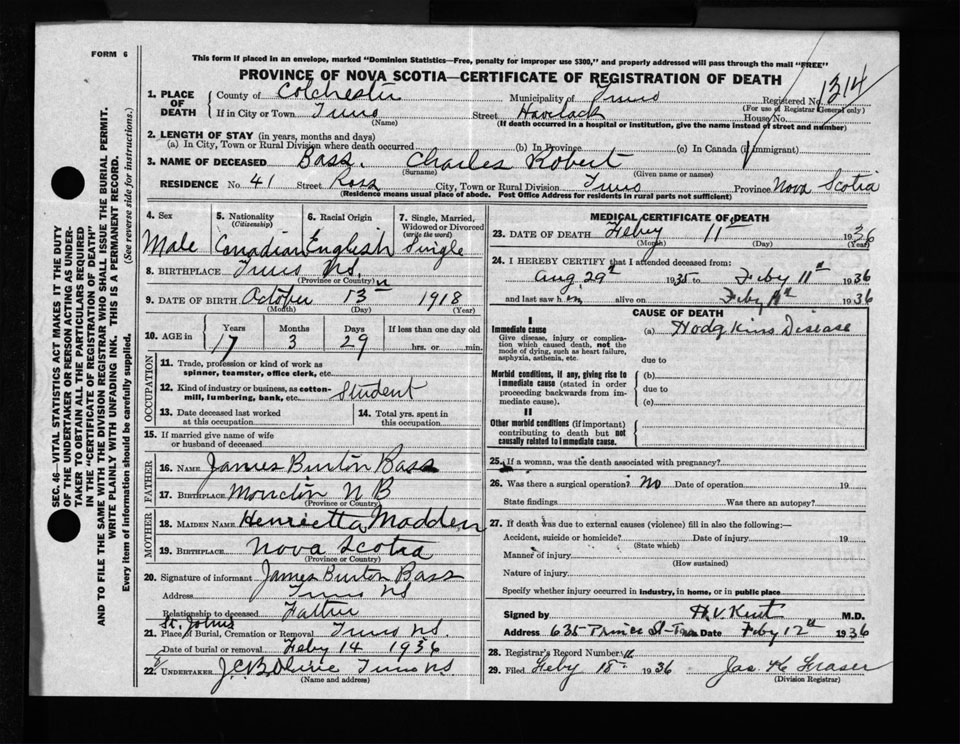 FORM 6
This form if placed in an envelope, marked "Dominion Statistics—Free, penalty for improper use $300," and properly addressed will pass through the mail "FREE"
PROVINCE OF NOVA SCOTIA—CERTIFICATE OF REGISTRATION OF DEATH
1314
1. PLACE OF DEATH County of Colchester Municipality of Truro Registered No.
(For use of Registrar General only)
If in City or Town Truro Street Havelock House No.
(Name) (If death occurred in a hospital or institution, give the name instead of street and number)
2. LENGTH OF STAY (in years, months and days)
(a) In City, Town or Rural Division where death occurred (b) In Province (c) In Canada (if immigrant)
3. NAME OF DECEASED Bass, Charles Robert
(Surname) (Given name or names)
RESIDENCE No. 41 Street Ross City, Town or Rural Division Truro Province Nova Scotia
(Residence means usual place of abode. Post Office Address for residents in rural parts not sufficient)
4. Sex Male
5. Nationality (Citizenship) Canadian
6. Racial Origin English
7. Single, Married, Widowed or Divorced (write the word) Single
8. BIRTHPLACE Truro N.S.
(Province or Country)
9. DATE OF BIRTH October 13th 1918
(Month) (Day) (Year)
10. AGE in Years 17 Months 3 Days 29 If less than one day old hrs. or min.
OCCUPATION
11. Trade, profession or kind of work as spinner, teamster, office clerk, etc.
12. Kind of industry or business, as cotton-mill, lumbering, bank, etc. Student
13. Date deceased last worked at this occupation
14. Total yrs. spent in this occupation
15. If married give name of wife or husband of deceased
FATHER
16. NAME James Burton Bass
17. BIRTHPLACE Moncton N B
(Province or Country)
MOTHER
18. MAIDEN NAME Henrietta Madden
19. BIRTHPLACE Nova Scotia
(Province or Country)
20. Signature of informant James Burton Bass
Address Truro NS
Relationship to deceased Father
St. Johns
21. Place of Burial, Cremation or Removal Truro N.S.
Date of burial or removal Feby 14 1936
22. UNDERTAKER Truro NS
(Name and address)
MEDICAL CERTIFICATE OF DEATH
23. DATE OF DEATH Feby 11th 1936
(Month) (Day) (Year)
24. I HEREBY CERTIFY that I attended deceased from:
Aug. 29th 1935 to Feby 11th 1936
and last saw him alive on Feby 11th 1936
CAUSE OF DEATH
I
Immediate cause (a) Hodgkins Disease
Give disease, injury or complication which caused death, not the mode of dying, such as heart failure, asphyxia, asthenia, etc.
due to
Morbid conditions, if any, giving rise to immediate cause (stated in order proceeding backwards from immediate cause).
(b)
due to
(c)
II
Other morbid conditions (if important) contributing to death but not causally related to immediate cause.
25. If a woman, was the death associated with pregnancy?
26. Was there a surgical operation? No Date of operation 19
State findings Was there an autopsy?
27. If death was due to external causes (violence) fill in also the following:—
Accident, suicide or homicide? Date of injury 19
(State which)
Manner of injury
(How sustained)
Nature of injury
Specify whether injury occurred in industry, in home, or in public place
Signed by H.V. Kent M.D.
Address 635 Prince St-Truro Date Feby 12th 1936
28. Registrar's Record Number
29. Filed Feby 18th 1936 Jas. K Fraser
(Division Registrar)
SEC. 46—VITAL STATISTICS ACT MAKES IT THE DUTY
OF THE UNDERTAKER OR PERSON ACTING AS UNDER-
TAKER TO OBTAIN ALL THE PARTICULARS REQUIRED
IN THE "CERTIFICATE OF REGISTRATION OF DEATH"
AND TO FILE THE SAME WITH THE DIVISION REGISTRAR WHO SHALL ISSUE THE BURIAL PERMIT.
WRITE PLAINLY WITH UNFADING INK. THIS IS A PERMANENT RECORD.
Every item of information should be carefully supplied. (See reverse side for instructions.)